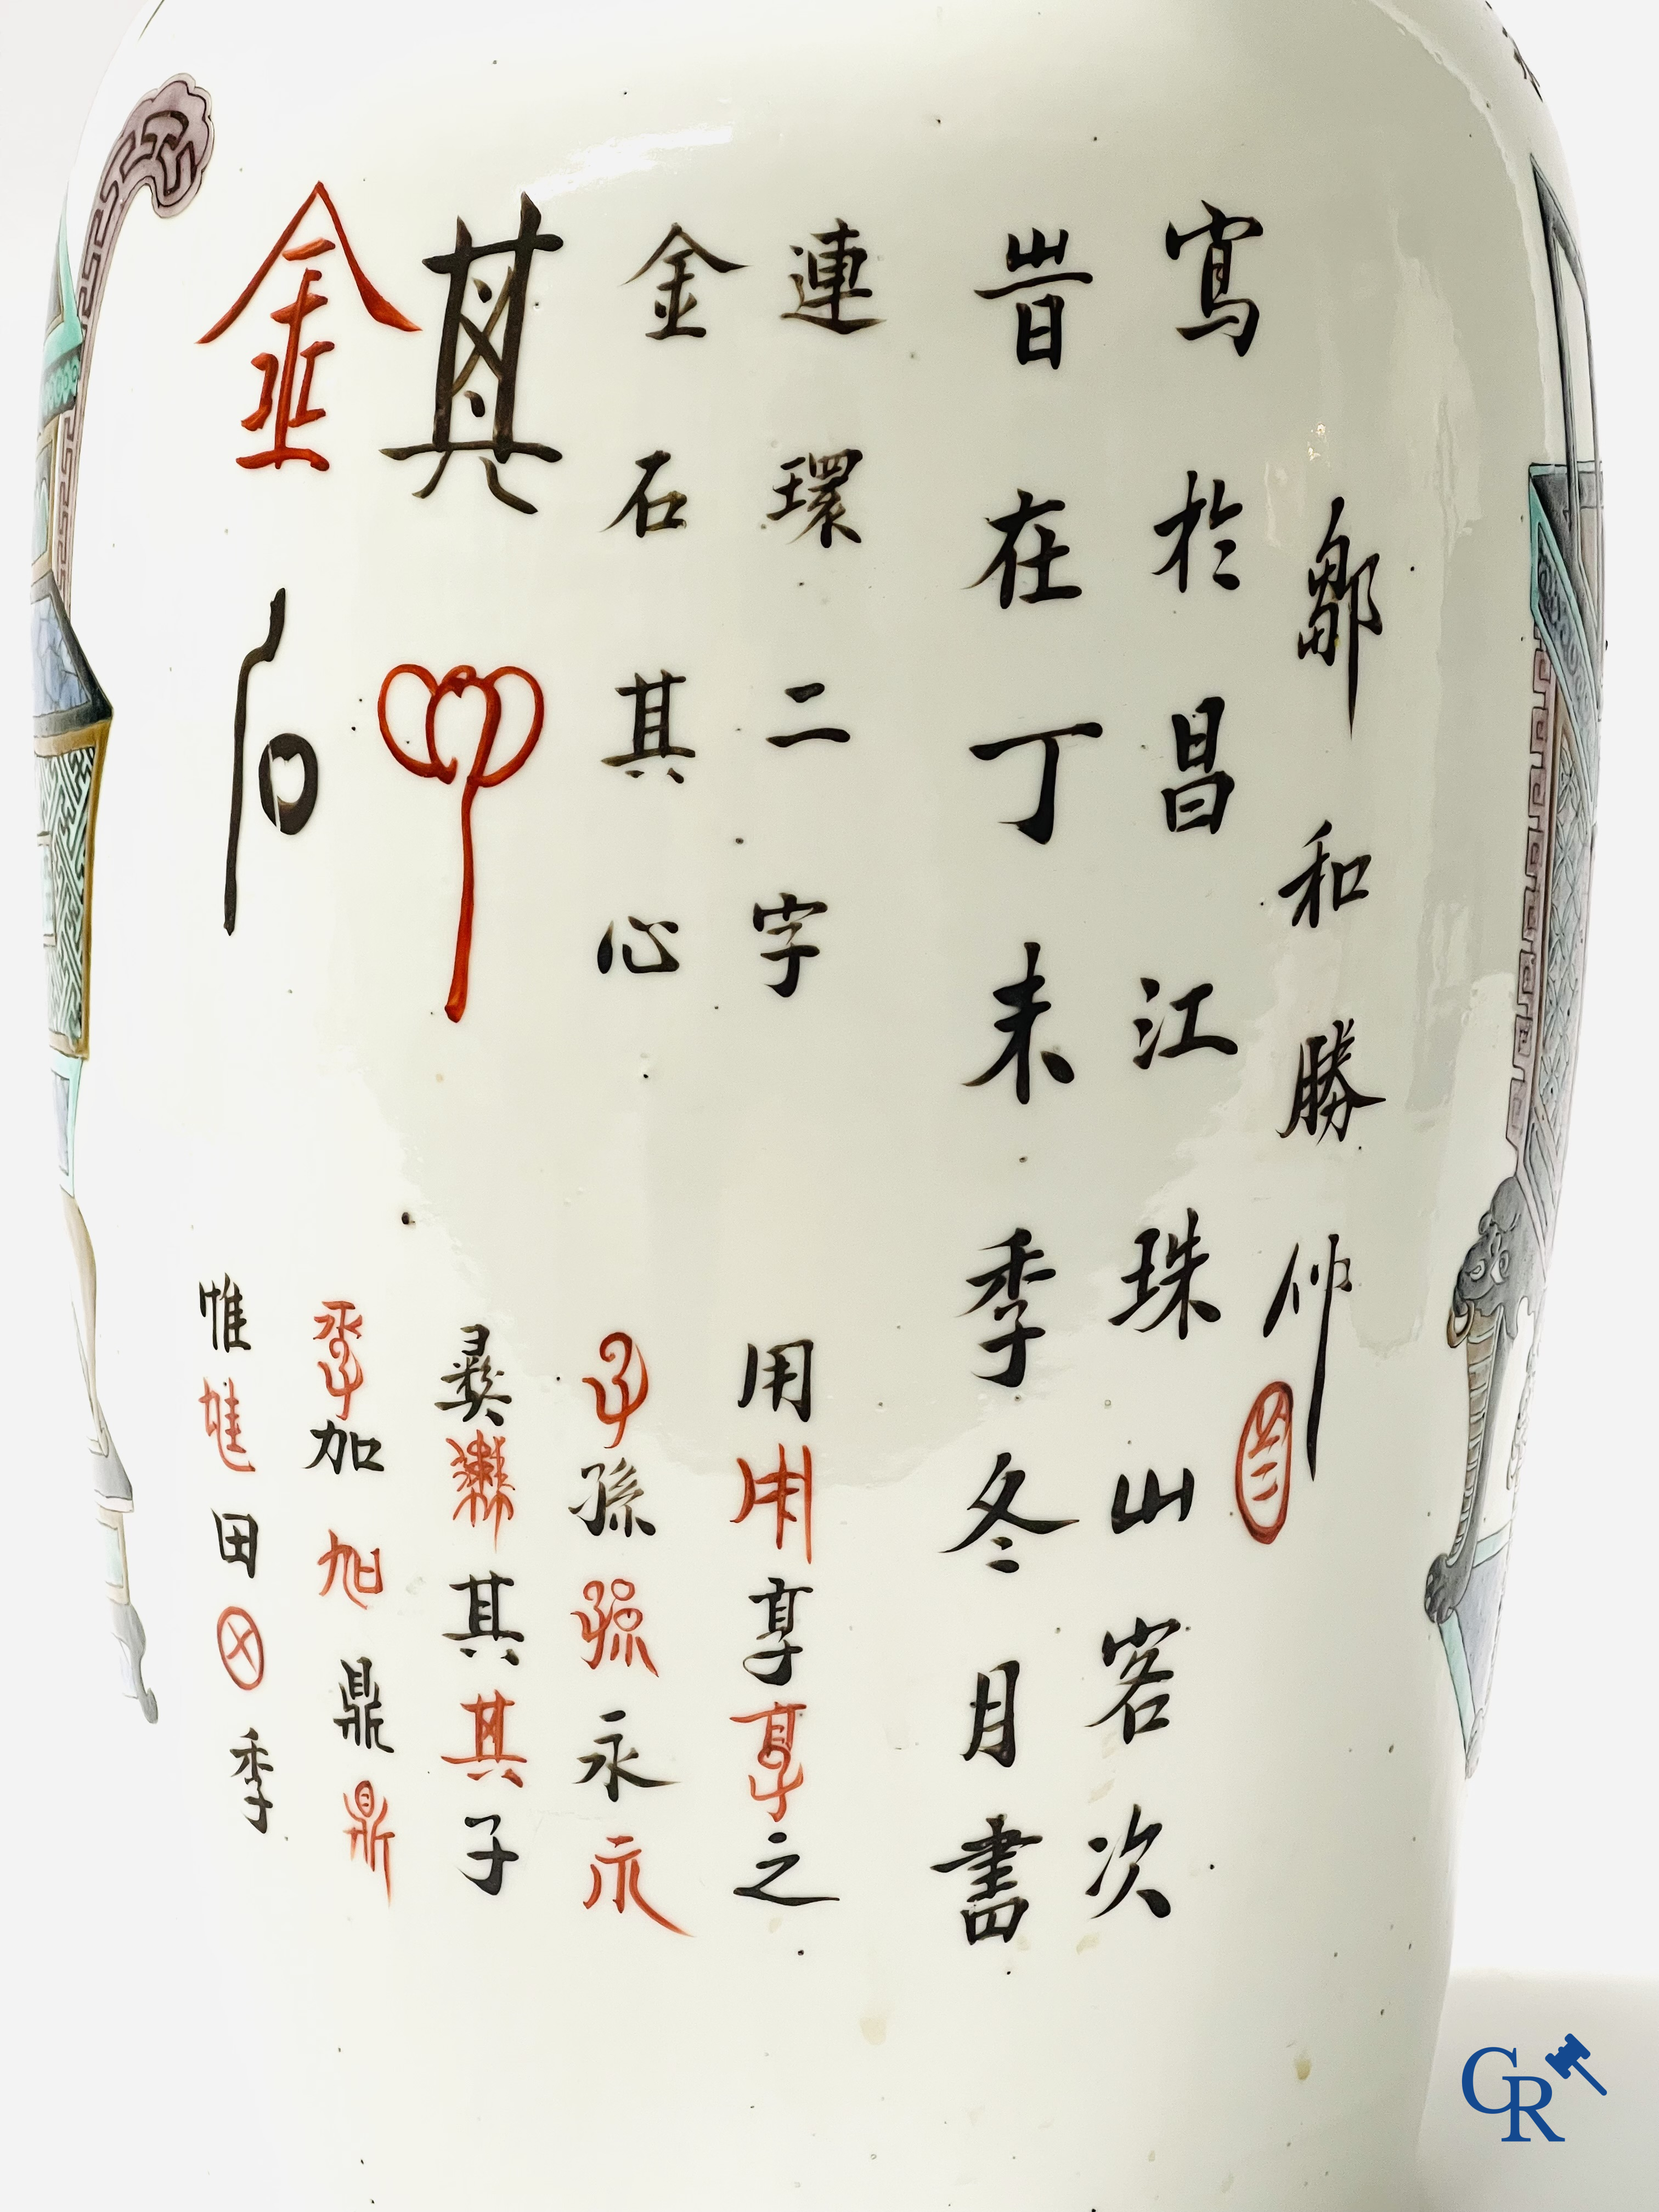 鄒和勝
寫於昌江珠山客次
旹在丁未季冬月書
連環二字
金石其心
用用享享之
子孫孫永永
其心
彝彝其其子
季加加鼎鼎
金石
惟惟田田季
CR